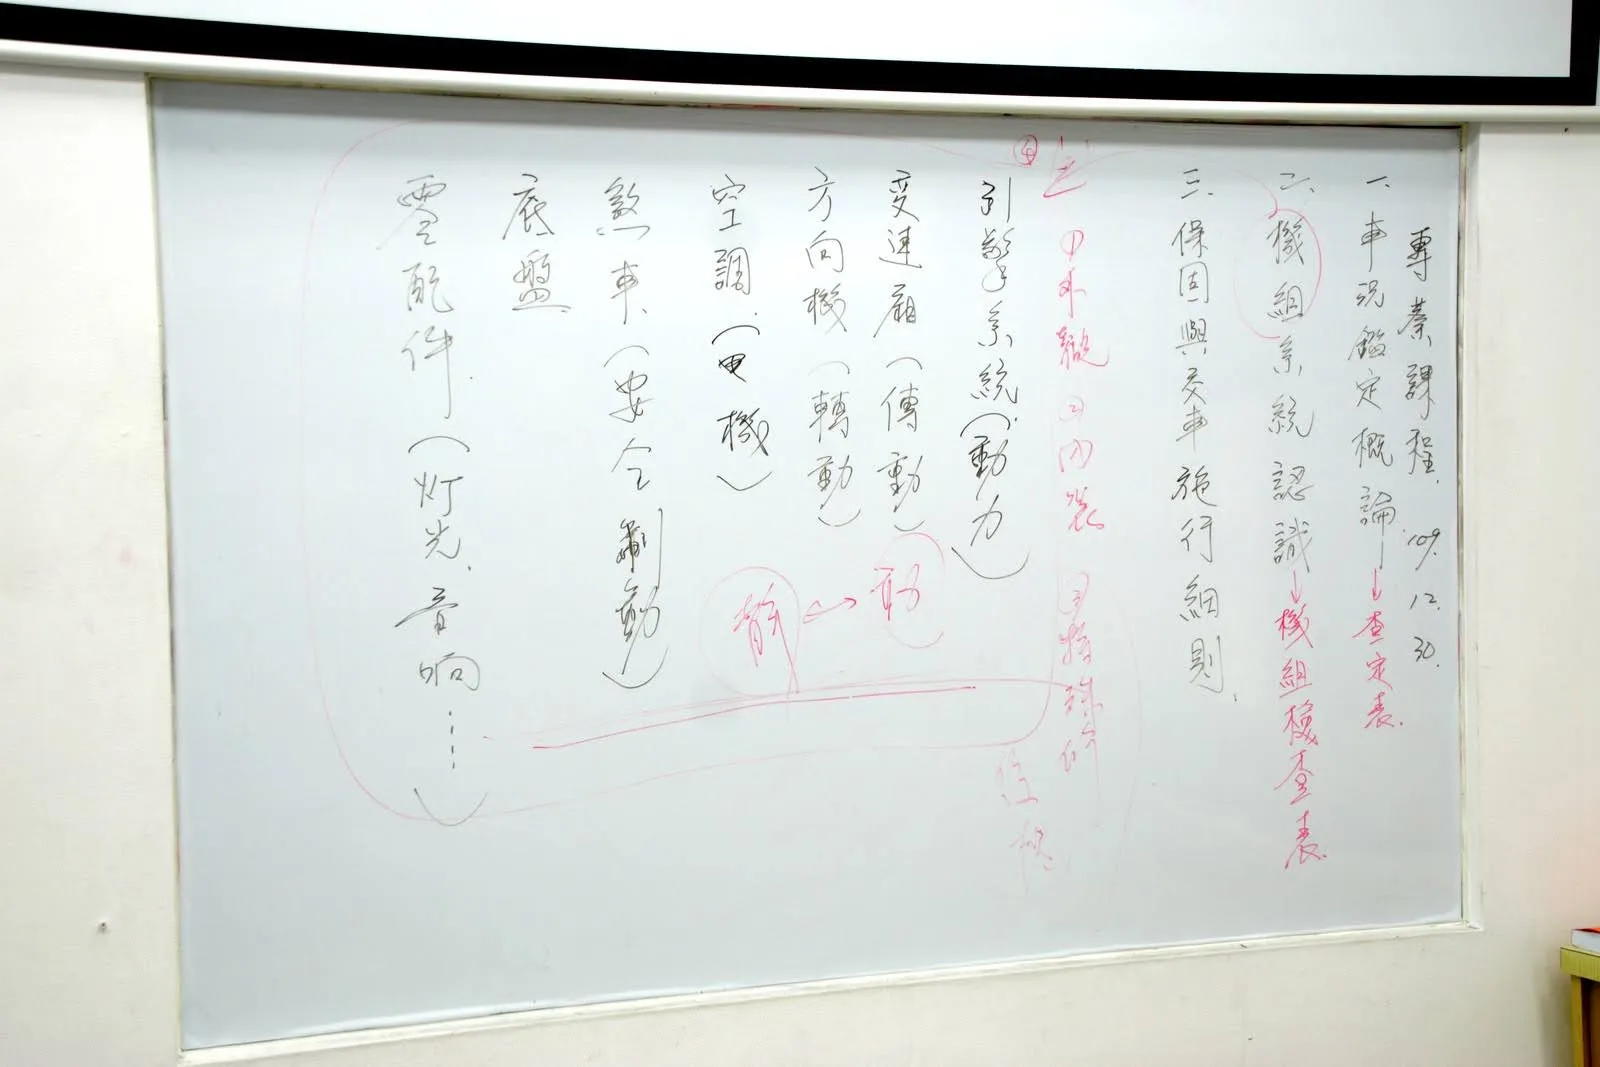 專業課程. 109. 12. 30.
一、車況鑑定概論→查定表.
二、機組系統認識→機組檢查表.
三、保固與交車施行細則.
①外觀 ②內裝 ③特殊件
④
引擎系統.(動力)
變速廂(傳動)
方向機(轉動)
空調.(電機)
煞車.(安全制動)
底盤
零配件.(灯光.音响……)
靜↔動